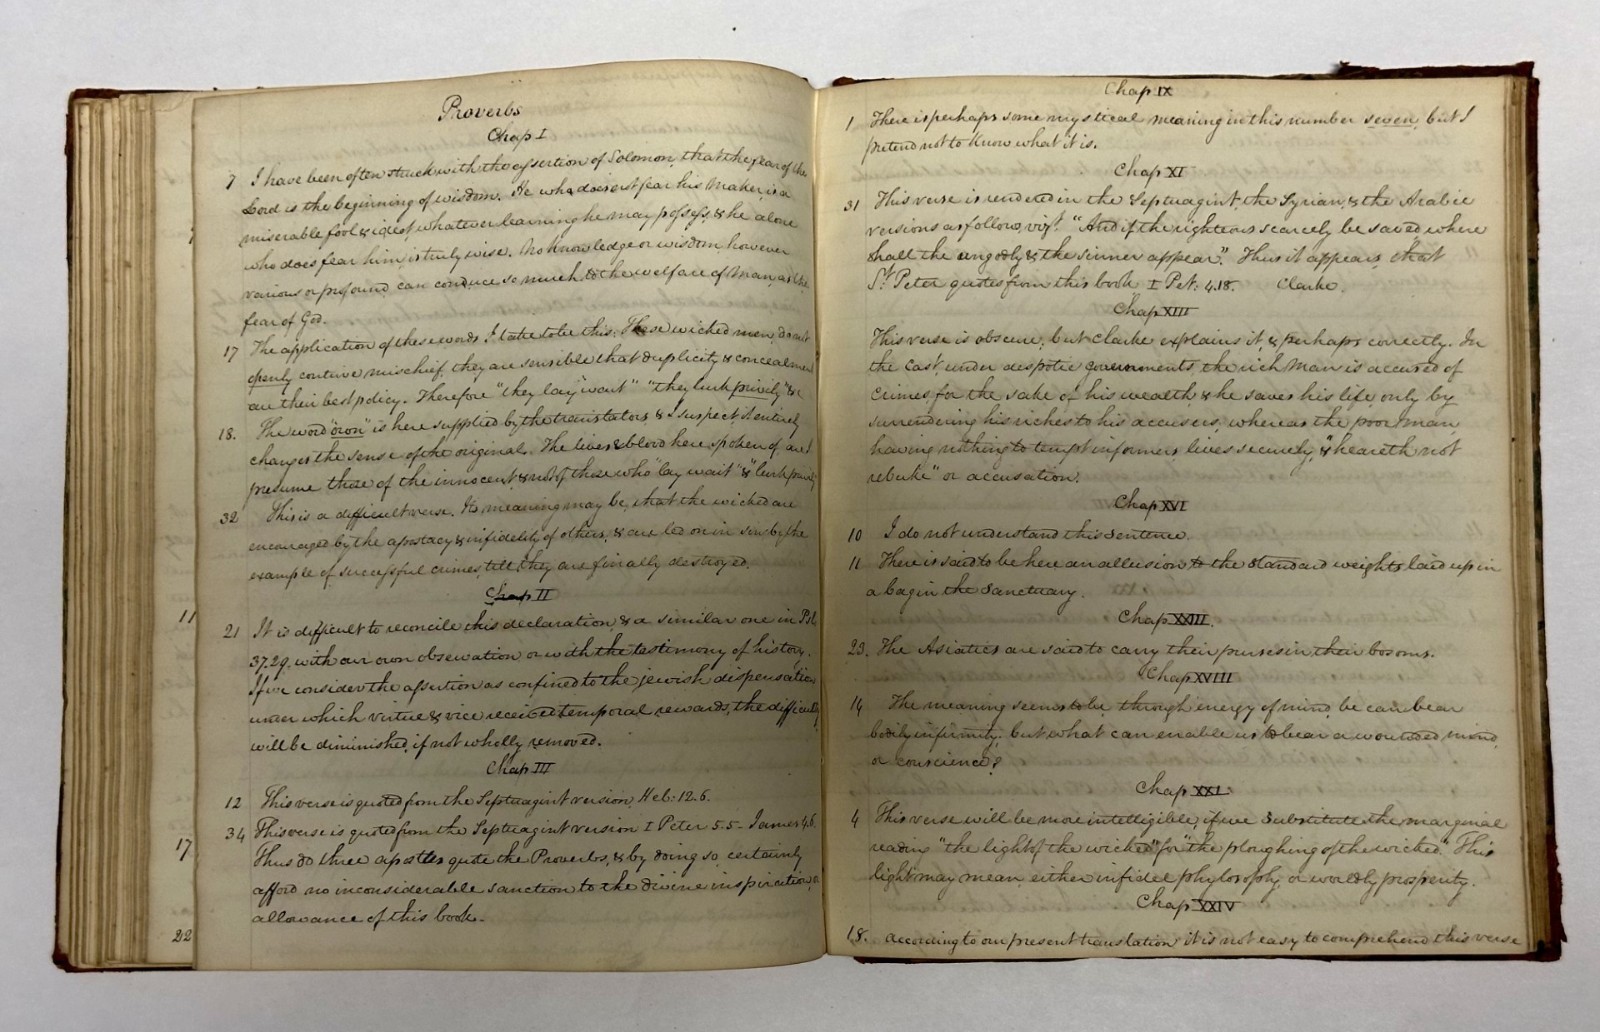 Proverbs
Chap I
7 I have been often struck with the assertion of Solomon, that the fear of the
Lord is the beginning of wisdom. He who does not fear his Maker, is a
miserable fool & idiot, whatever learning he may possess, & he alone
who does fear him, is truly wise. No knowledge or wisdom, however
various or profound can conduce so much to the welfare of Man, as the
fear of God.
17 The application of these words I take to be this. These wicked men, do not
openly contrive mischief, they are sensible that duplicity & concealment
are their best policy. Therefore "they lay wait" "they lurk privily" &c
18. The word "own" is here supplied by the translators, & I suspect, entirely
changes the sense of the original. The lives & blood here spoken of are I
presume those of the innocent, & not of those who "lay wait" & "lurk privily
32 This is a difficult verse. Its meaning may be, that the wicked are
encouraged by the apostacy & infidelity of others, & are led on in sin by the
example of successful crimes, till they are finally destroyed.
Chap II
11
21 It is difficult to reconcile this declaration, & a similar one in Psl.
37.29. with our own observation or with the testimony of history.
If we consider the assertion as confined to the jewish dispensation
under which virtue & vice received temporal rewards, the difficulty
will be diminished, if not wholly removed.
Chap III
12 This verse is quoted from the Septuagint version, Heb: 12.6.
34 This verse is quoted from the Septuagint version I Peter 5.5 - James 4.6.
17
Thus do three apostles quote the Proverbs, & by doing so, certainly
afford no inconsiderable sanction to the divine inspiration, or
allowance of this book.
22
Chap IX
1 There is perhaps some mystical meaning in this number seven, but I
pretend not to know what it is.
Chap XI
31 This verse is rendered in the Septuagint, the Syrian, & the Arabic
versions as follows, viz. "And if the righteous scarcely be saved where
shall the ungodly & the sinner appear". Thus it appears, that
St. Peter quotes from this book I Pet: 4.18. Clarke.
Chap XIII
This verse is obscure, but Clarke explains it, & perhaps correctly. In
the East, under despotic governments, the rich Man is accused of
crimes for the sake of his wealth & he saves his life only by
surrendering his riches to his accusers, whereas the poor man
having nothing to tempt informers lives securely, "& heareth not
rebuke" or accusation.
Chap XVI
10 I do not understand this sentence.
11 There is said to be here an allusion to the standard weights laid up in
a bag in the Sanctuary.
Chap XXIII.
23. The Asiatics are said to carry their purses in their bosoms.
Chap XVIII
14 The meaning seems to be, through energy of mind, he can bear
bodily infirmity, but what can enable us to bear a wounded mind,
or conscience?
Chap XXI
4 This verse will be more intelligible, if we substitute the marginal
reading "the light of the wicked" for "the ploughing of the wicked". This
light may mean either infidel phylosophy, or worldly prosperity.
Chap XXIV
18. according to our present translation it is not easy to comprehend this verse